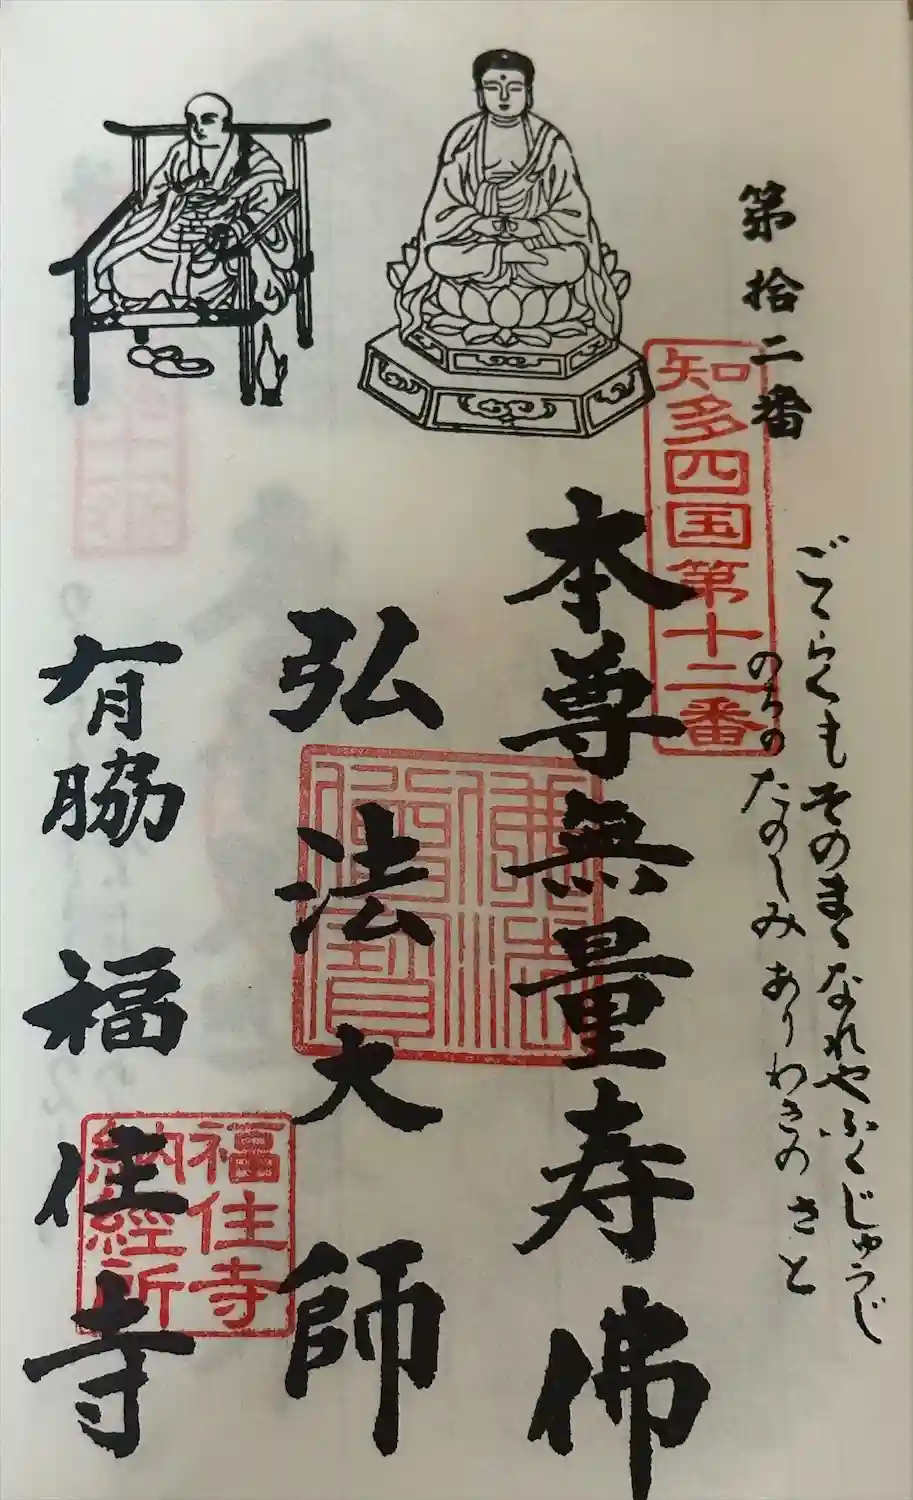 第拾二番
知多四国第十二番
ごくらくもそのまゝなれやふくじゅうじ
のちのたのしみありわきのさと
本尊無量寿佛
弘法大師
佛法僧寳
有脇 福住寺
福住寺
納経所